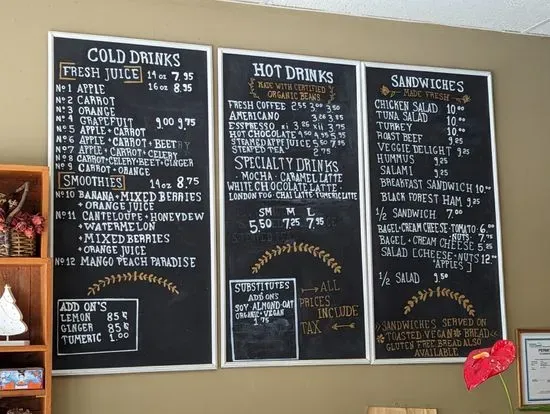 COLD DRINKS
FRESH JUICE 14oz 7.95
16oz 8.95
Nº1 APPLE
Nº2 CARROT
Nº3 ORANGE
Nº4 GRAPEFRUIT 9.00 9.75
Nº5 APPLE + CARROT
Nº6 APPLE + CARROT + BEET
Nº7 APPLE + CARROT + CELERY
Nº8 CARROT + CELERY + BEET + GINGER
Nº9 CARROT + ORANGE
SMOOTHIES 14oz 8.75
Nº10 BANANA + MIXED BERRIES
+ ORANGE JUICE
Nº11 CANTELOUPE + HONEYDEW
+ WATERMELON
+ MIXED BERRIES
+ ORANGE JUICE
Nº12 MANGO PEACH PARADISE
ADD ON'S
LEMON 85¢
GINGER 85¢
TUMERIC 1.00
HOT DRINKS
MADE WITH CERTIFIED
ORGANIC BEANS
FRESH COFFEE 2.55 3.00 3.50
AMERICANO 3.00 3.50
ESSPRESSO x1 3.25 x11 3.75
HOT CHOCOLATE
STEAMED APPLE JUICE 5.50 7.75
STEEPED TEA 2.75
SPECIALTY DRINKS
MOCHA · CARAMEL LATTE
WHITE CHOCOLATE LATTE
LONDON FOG · CHAI LATTE TUMERIC LATTE
SM M L
5.50 7.25 7.95
SUBSTITUTES
ADD ON'S
SOY ALMOND OAT
ORGANIC + VEGAN
1.75
ALL
PRICES
INCLUDE
TAX
SANDWICHES
MADE FRESH
CHICKEN SALAD 10.00
TUNA SALAD 10.00
TURKEY 10.00
ROAST BEEF 9.25
VEGGIE DELIGHT 9.25
HUMMUS 9.25
SALAMI 9.25
BREAKFAST SANDWICH 10.00
BLACK FOREST HAM 9.25
1/2 SANDWICH 7.00
BAGEL + CREAM CHEESE + TOMATO 6.00
+ NUTS 7.75
BAGEL + CREAM CHEESE 5.25
SALAD [CHEESE + NUTS 12.00
+ APPLES]
1/2 SALAD 9.50
SANDWICHES SERVED ON
TOASTED VEGAN BREAD
GLUTEN FREE BREAD ALSO
AVAILABLE